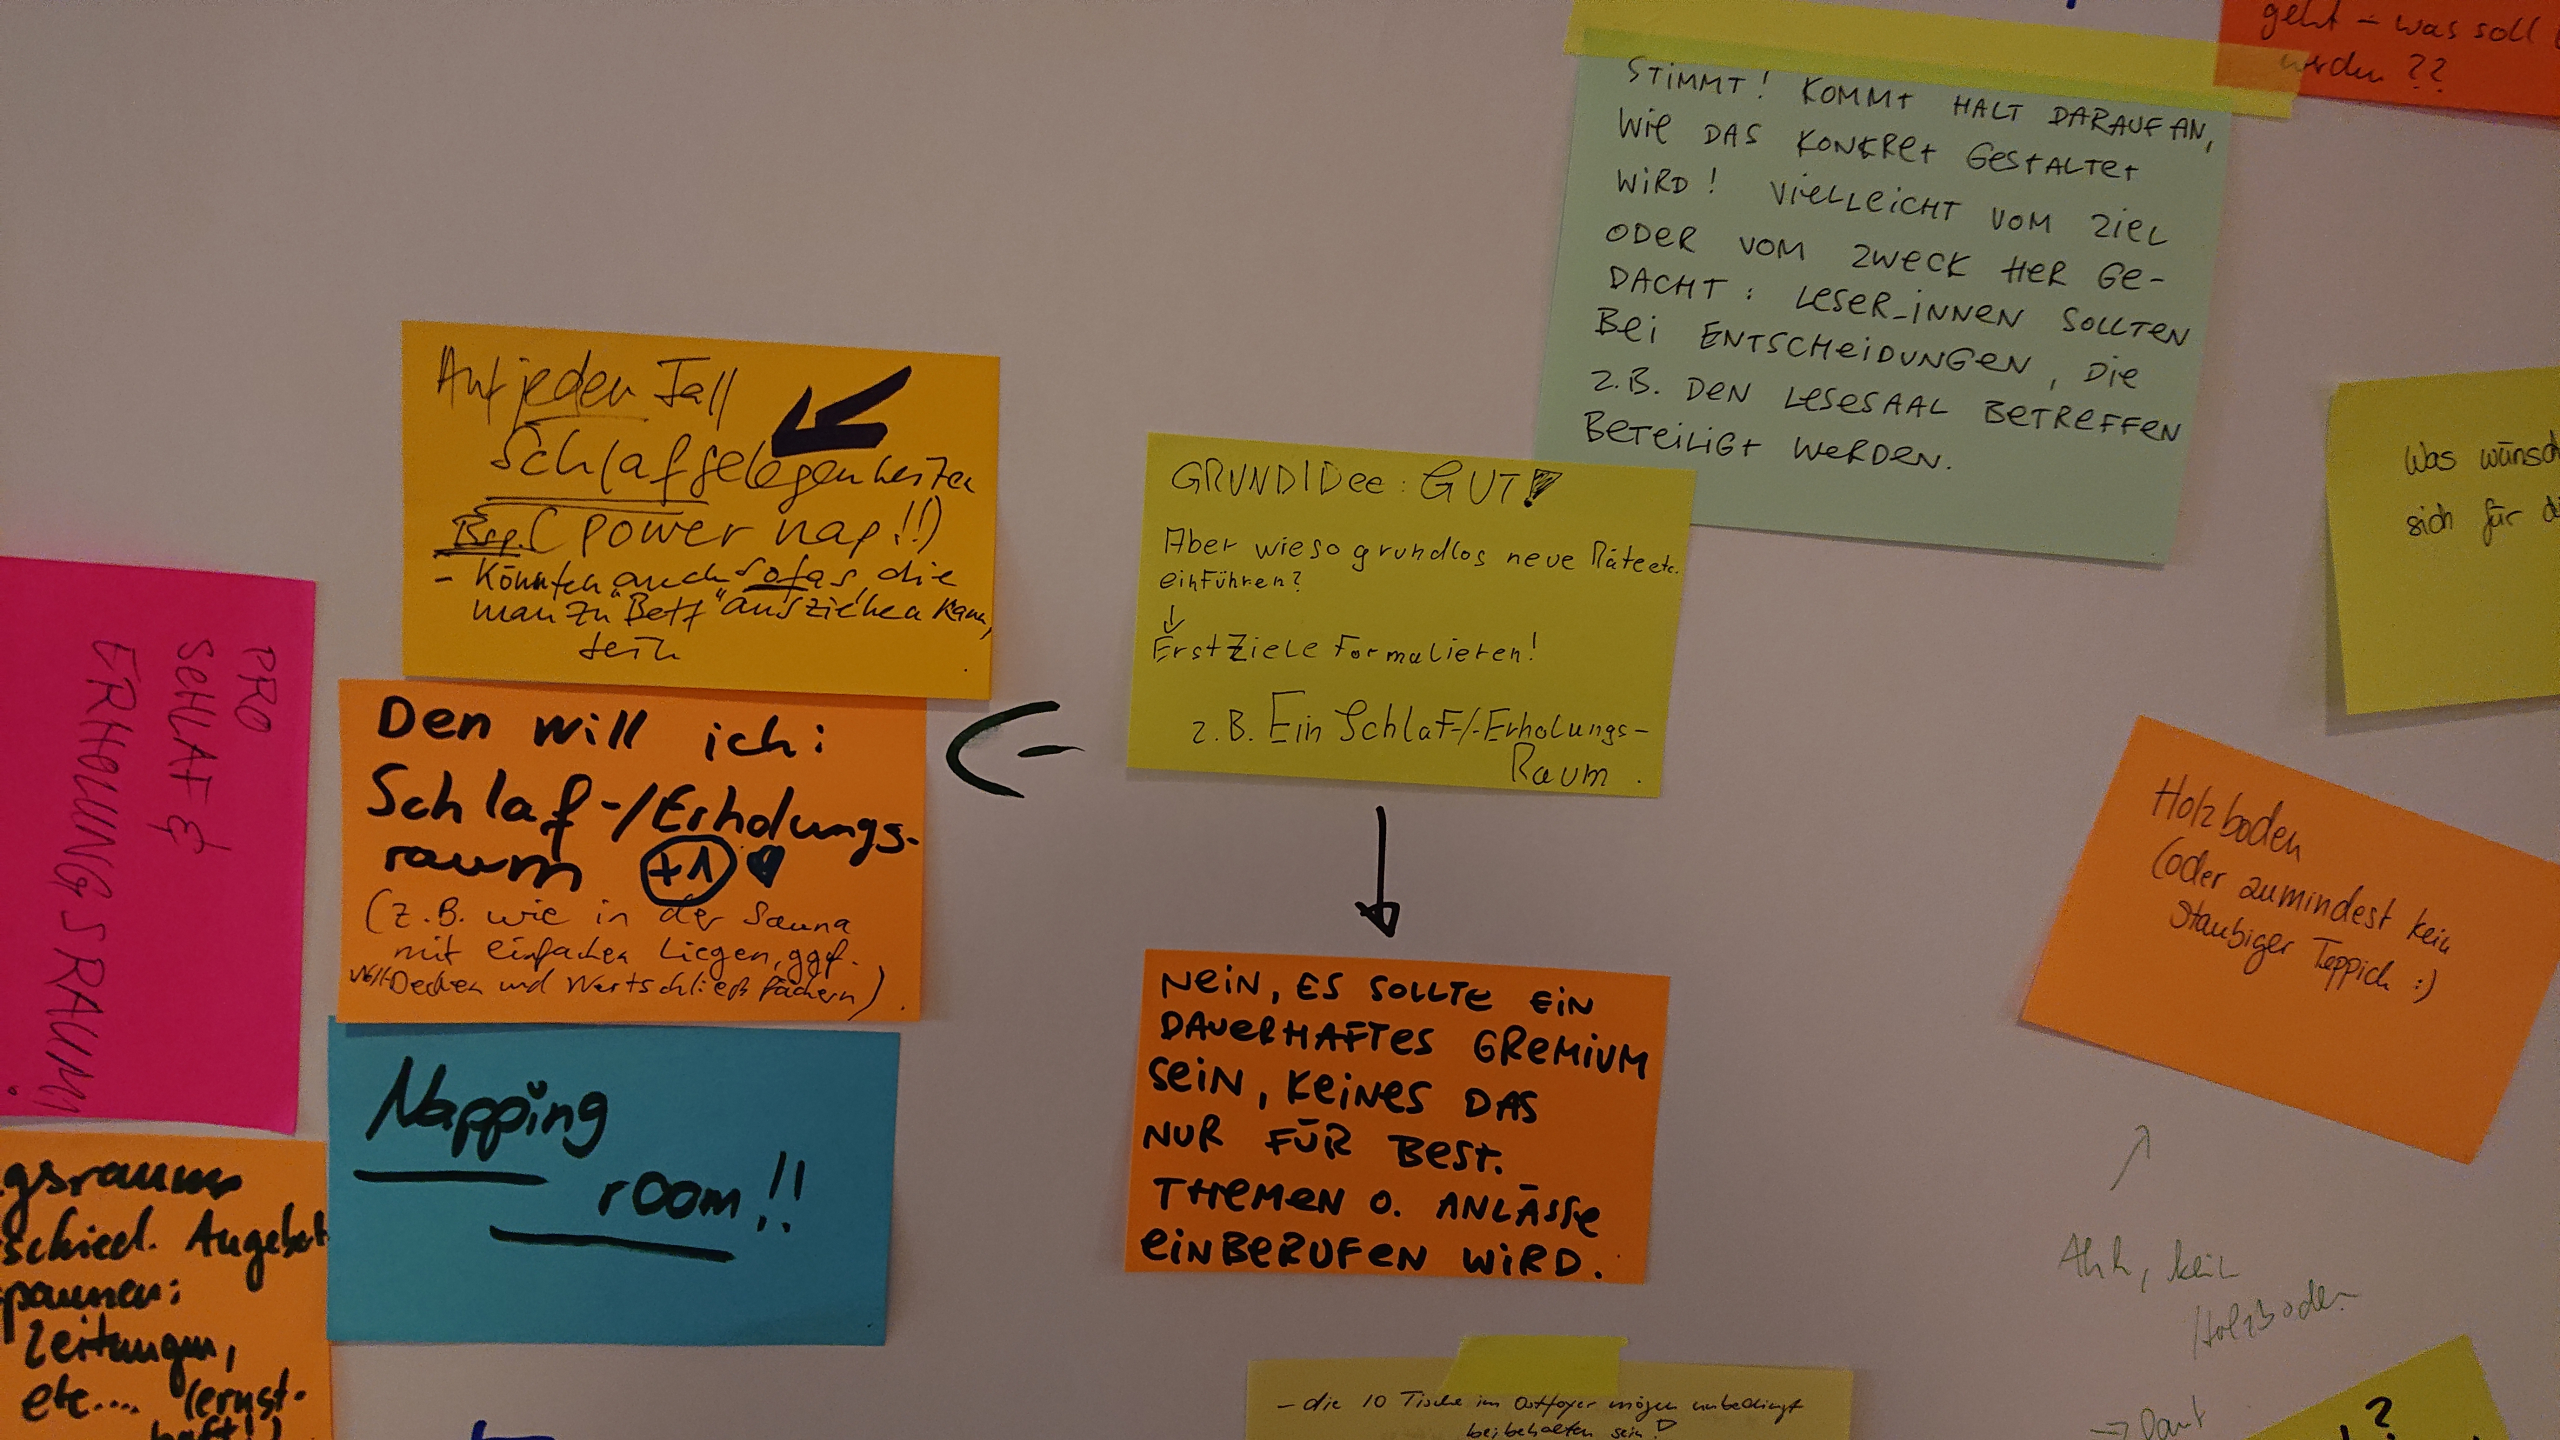 geht – was soll
werden ??
STIMMT! KOMMT HALT DARAUF AN,
WIE DAS KONKRET GESTALTET
WIRD! VIELLEICHT VOM ZIEL
ODER VOM ZWECK HER GE-
DACHT: LESER_INNEN SOLLTEN
BEI ENTSCHEIDUNGEN, DIE
Z.B. DEN LESESAAL BETREFFEN
BETEILIGT WERDEN.
Auf jeden Fall
Schlafgelegenheiten
Bsp. (power nap!!)
- Könnten auch Sofas, die
man zu "Bett" ausziehen kann,
sein
GRUNDIDEE: GUT!
Aber wieso grundlos neue Räte etc.
einführen?
↓
Erst Ziele Formulieren!
z.B. Ein Schlaf-/-Erholungs-
Raum.
Was wünsch
sich für di
PRO
SCHLAF &
ERHOLUNGSRAUM!
Den will ich:
Schlaf-/Erholungs-
raum +1 ♥
(z.B. wie in der Sauna
mit einfachen Liegen, ggf.
Woll-Decken und Wertschließfächern).
Holzboden
(oder zumindest kein
staubiger Teppich :)
NEIN, ES SOLLTE EIN
DAUERHAFTES GREMIUM
SEIN, KEINES DAS
NUR FÜR BEST.
THEMEN O. ANLÄSSE
EINBERUFEN WIRD.
Napping
room!!
gsraum
schied. Angebot
spannen:
Zeitungen,
etc.... (ernst-
haft!)
Ahh, kein
Holzboden
- die 10 Tische im Ostfoyer mögen unbedingt
beibehalten sein!
?